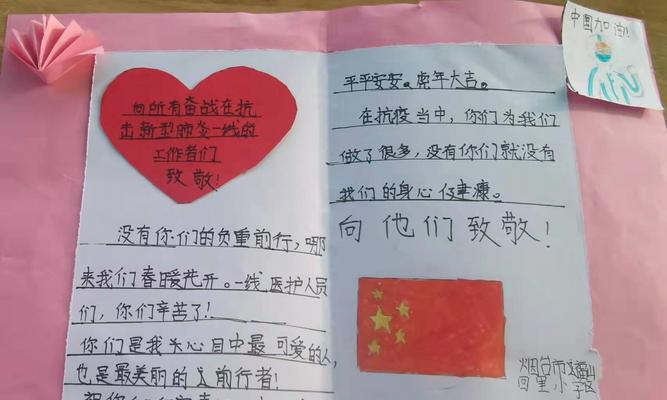 向所有奋战在抗
击新型肺炎一线的
工作者们
致敬!
没有你们的负重前行,哪
来我们春暖花开。一线医护人员
们,你们辛苦了!
你们是我大心目中最可爱的人,
也是最美丽的逆前行者!
中国加油!
平平安安。虎年大吉。
在抗疫当中,你们为我们
做了很多,没有你们就没有
我们的身心健康。
向他们致敬!
烟台市福山区
回里小学